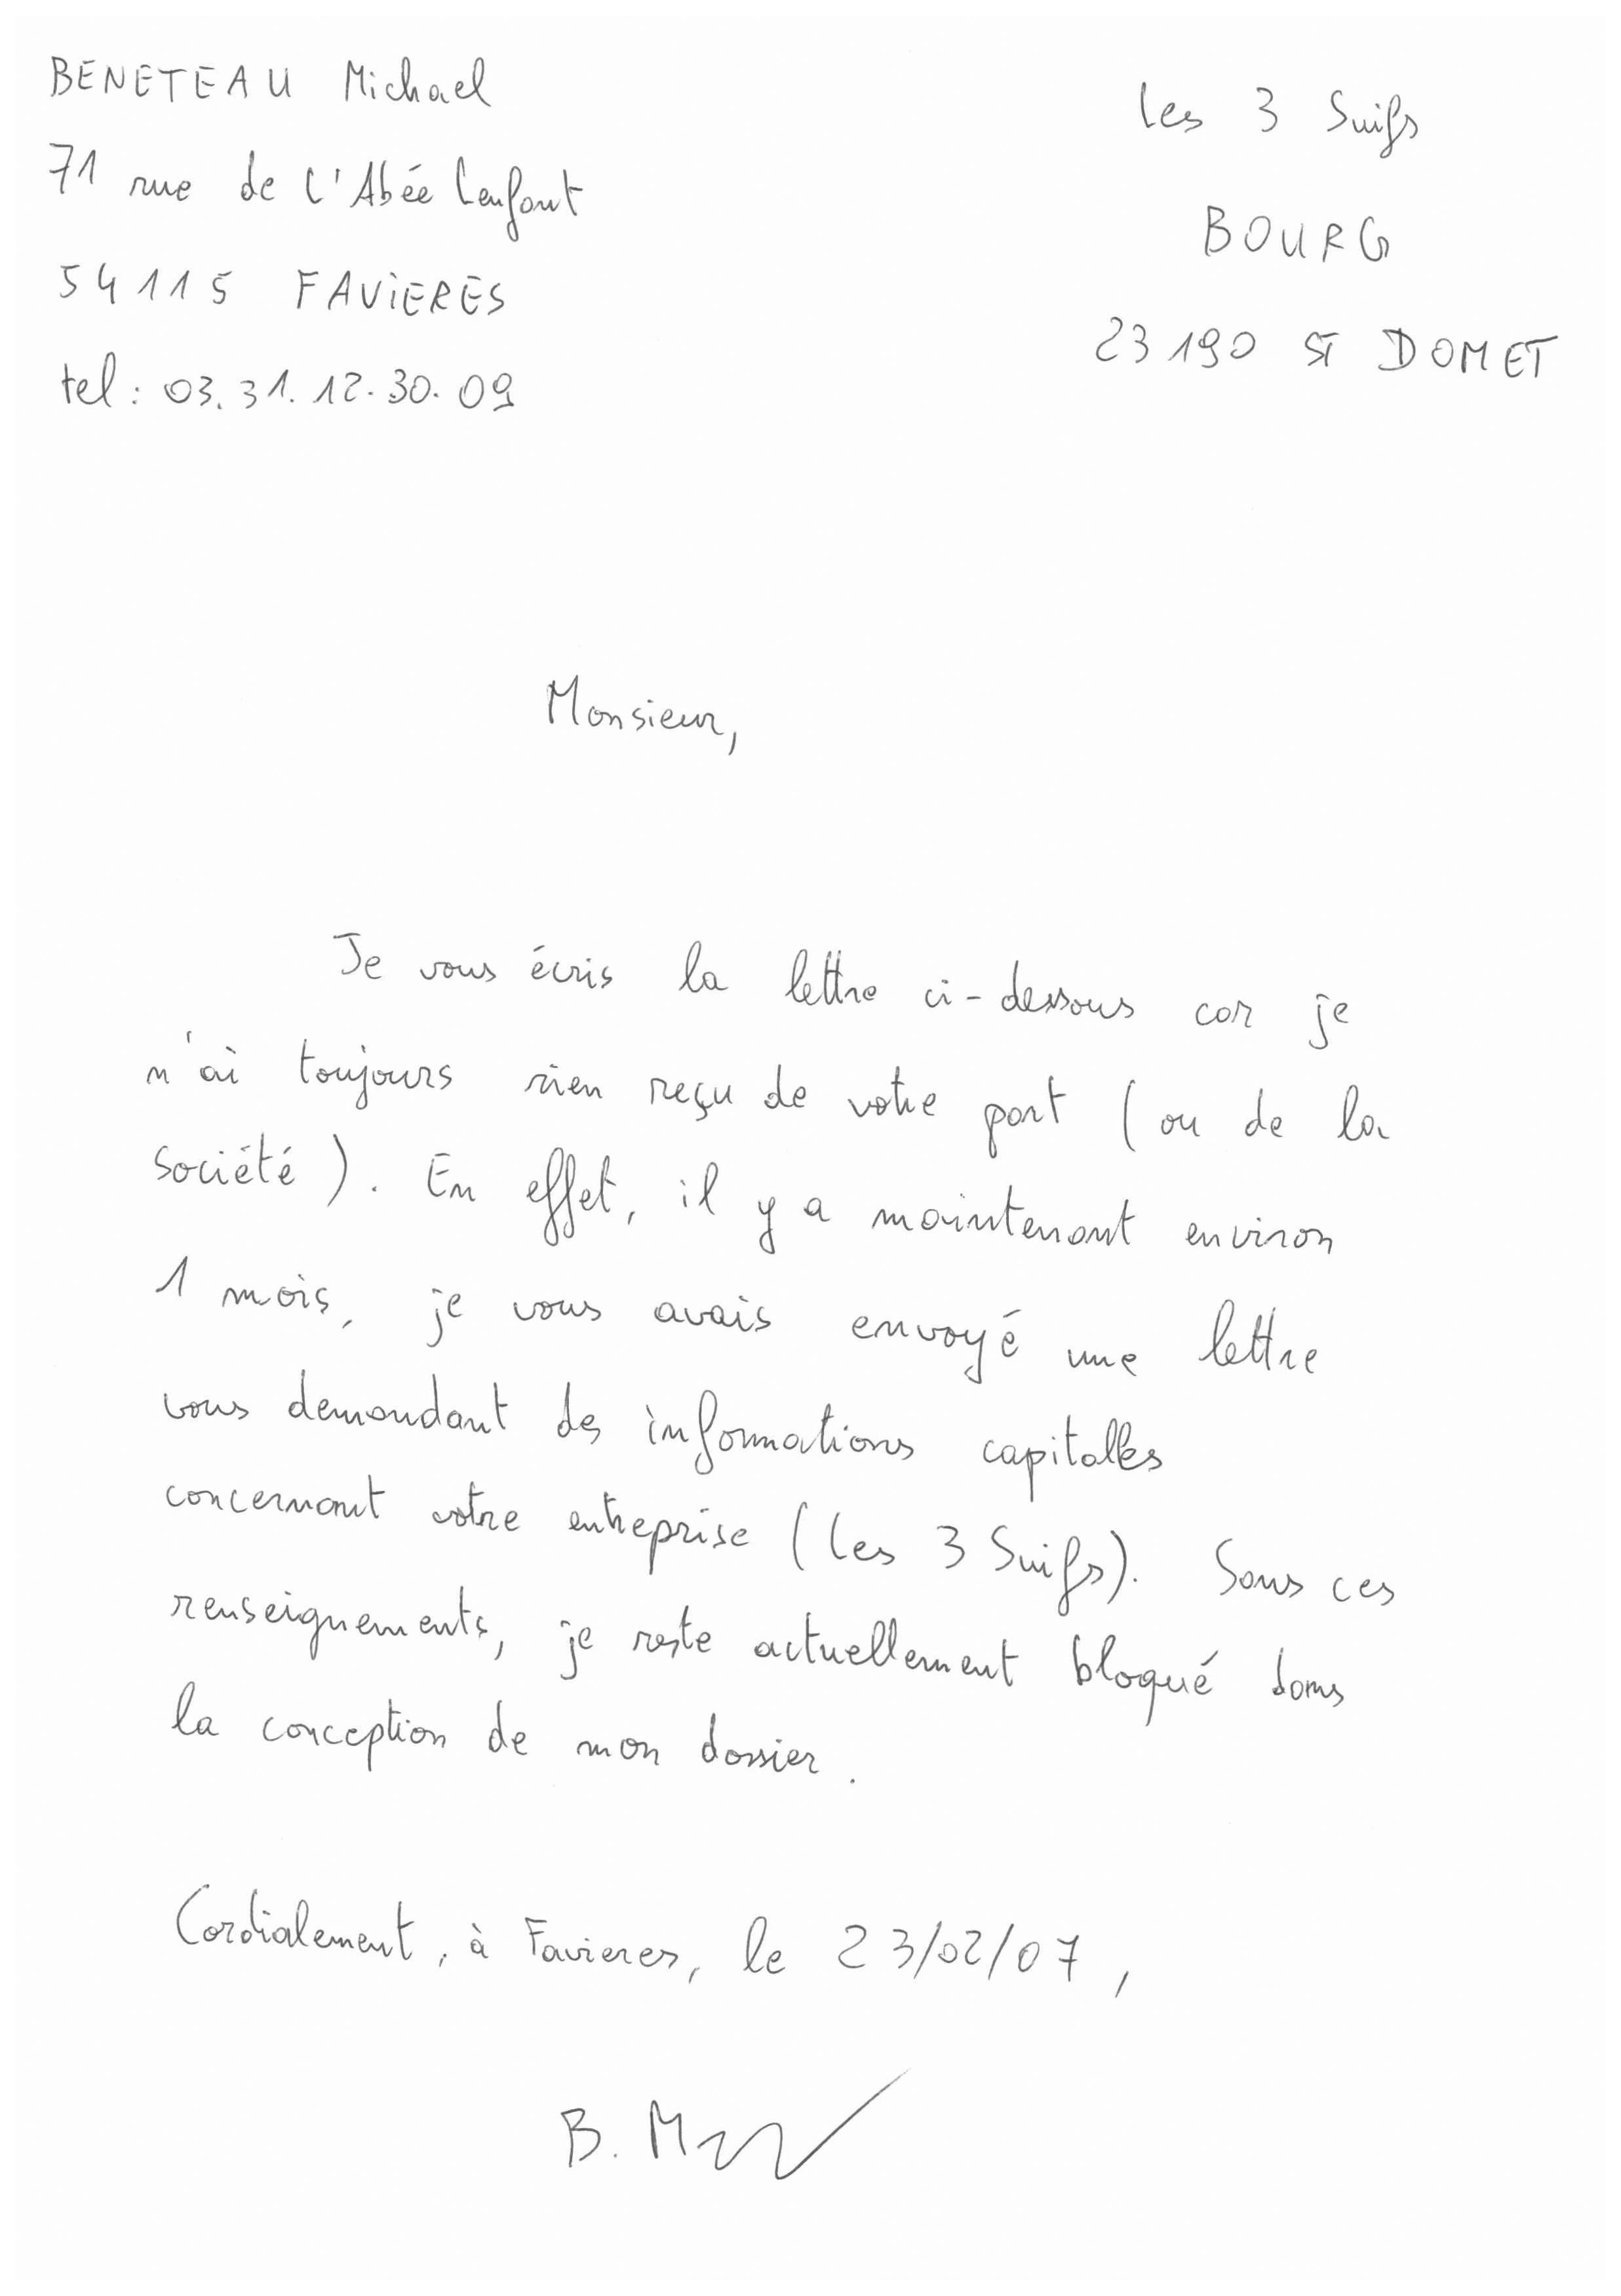 BENETEAU Michael
71 rue de l'Abée Lenfant
54115 FAVIERES
tel : 03.31.12.30.09
Les 3 Suifs
BOURG
23190 ST DOMET
Monsieur,
Je vous écris la lettre ci-dessous car je
n'ai toujours rien reçu de votre part (ou de la
société). En effet, il y a maintenant environ
1 mois, je vous avais envoyé une lettre
vous demandant des informations capitalles
concernant votre entreprise (Les 3 Suifs). Sans ces
renseignements, je reste actuellement bloqué dans
la conception de mon dossier.
Cordialement, à Favieres, le 23/02/07,
B. M